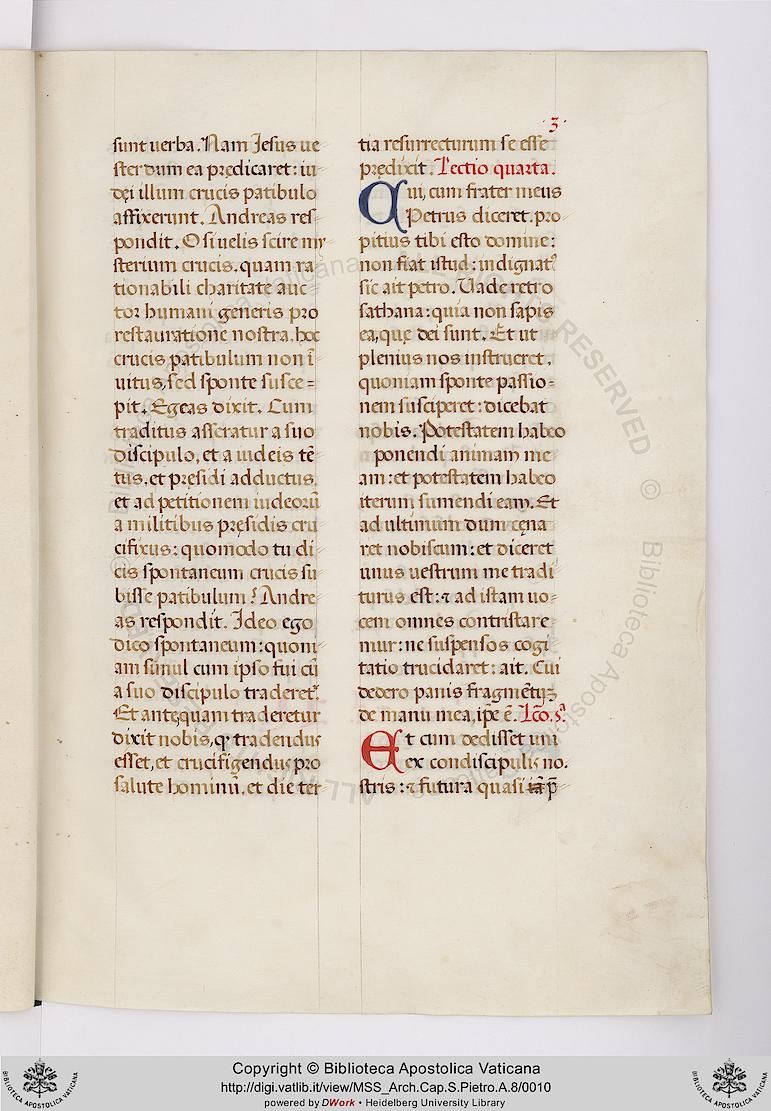 3
sunt uerba. Nam Jesus ue
ster dum ea prędicaret: iu
dęi illum crucis patibulo
affixerunt. Andreas res
pondit. O si uelis scire my
sterium crucis, quam ra
tionabili charitate auc
tor humani generis pro
restauratione nostra, hoc
crucis patibulum non ī
uitus, sed sponte susce=
pit. Egeas dixit. Cum
traditus asseratur a suo
discipulo, et a iudeis tē
tus, et pręsidi adductus,
et ad petitionem iudeorū
a militibus pręsidis cru
cifixus: quomodo tu di
cis spontaneum crucis su
bisse patibulum? Andre
as respondit. Ideo ego
dico spontaneum: quoni
am simul cum ipso fui cū
a suo discipulo traderet᷑.
Et antequam traderetur
dixit nobis, ꝙ tradendus
esset, et crucifigendus pro
salute hominū, et die ter
tia resurrecturum se esse
prędixit. Lectio quarta.
Qui, cum frater meus
Petrus diceret. pro
pitius tibi esto domine:
non fiat istud: indignat᷑
sic ait petro. Uade retro
sathana: quia non sapis
ea, quę dei sunt. Et ut
plenius nos instrueret,
quoniam sponte passio=
nem susciperet: dicebat
nobis. Potestatem habeo
ponendi animam me
am: et potestatem habeo
iterum sumendi eam. Et
ad ultimum dum cęna
ret nobiscum: et diceret
unus uestrum me tradi
turus est: ⁊ ad istam uo=
cem omnes contristare
mur: ne suspensos cogi
tatio trucidaret: ait. Cui
dedero panis fragmētuꝫ
de manu mea, ip̄e ē. Lc̄o. 5ª.
Et cum dedisset uni
ex condiscipulis no.
stris: ⁊ futura quasi iā p̄
Copyright © Biblioteca Apostolica Vaticana
http://digi.vatlib.it/view/MSS_Arch.Cap.S.Pietro.A.8/0010
powered by DWork • Heidelberg University Library
BIBLIOTECA APOSTOLICA VATICANA
BIBLIOTECA APOSTOLICA VATICANA